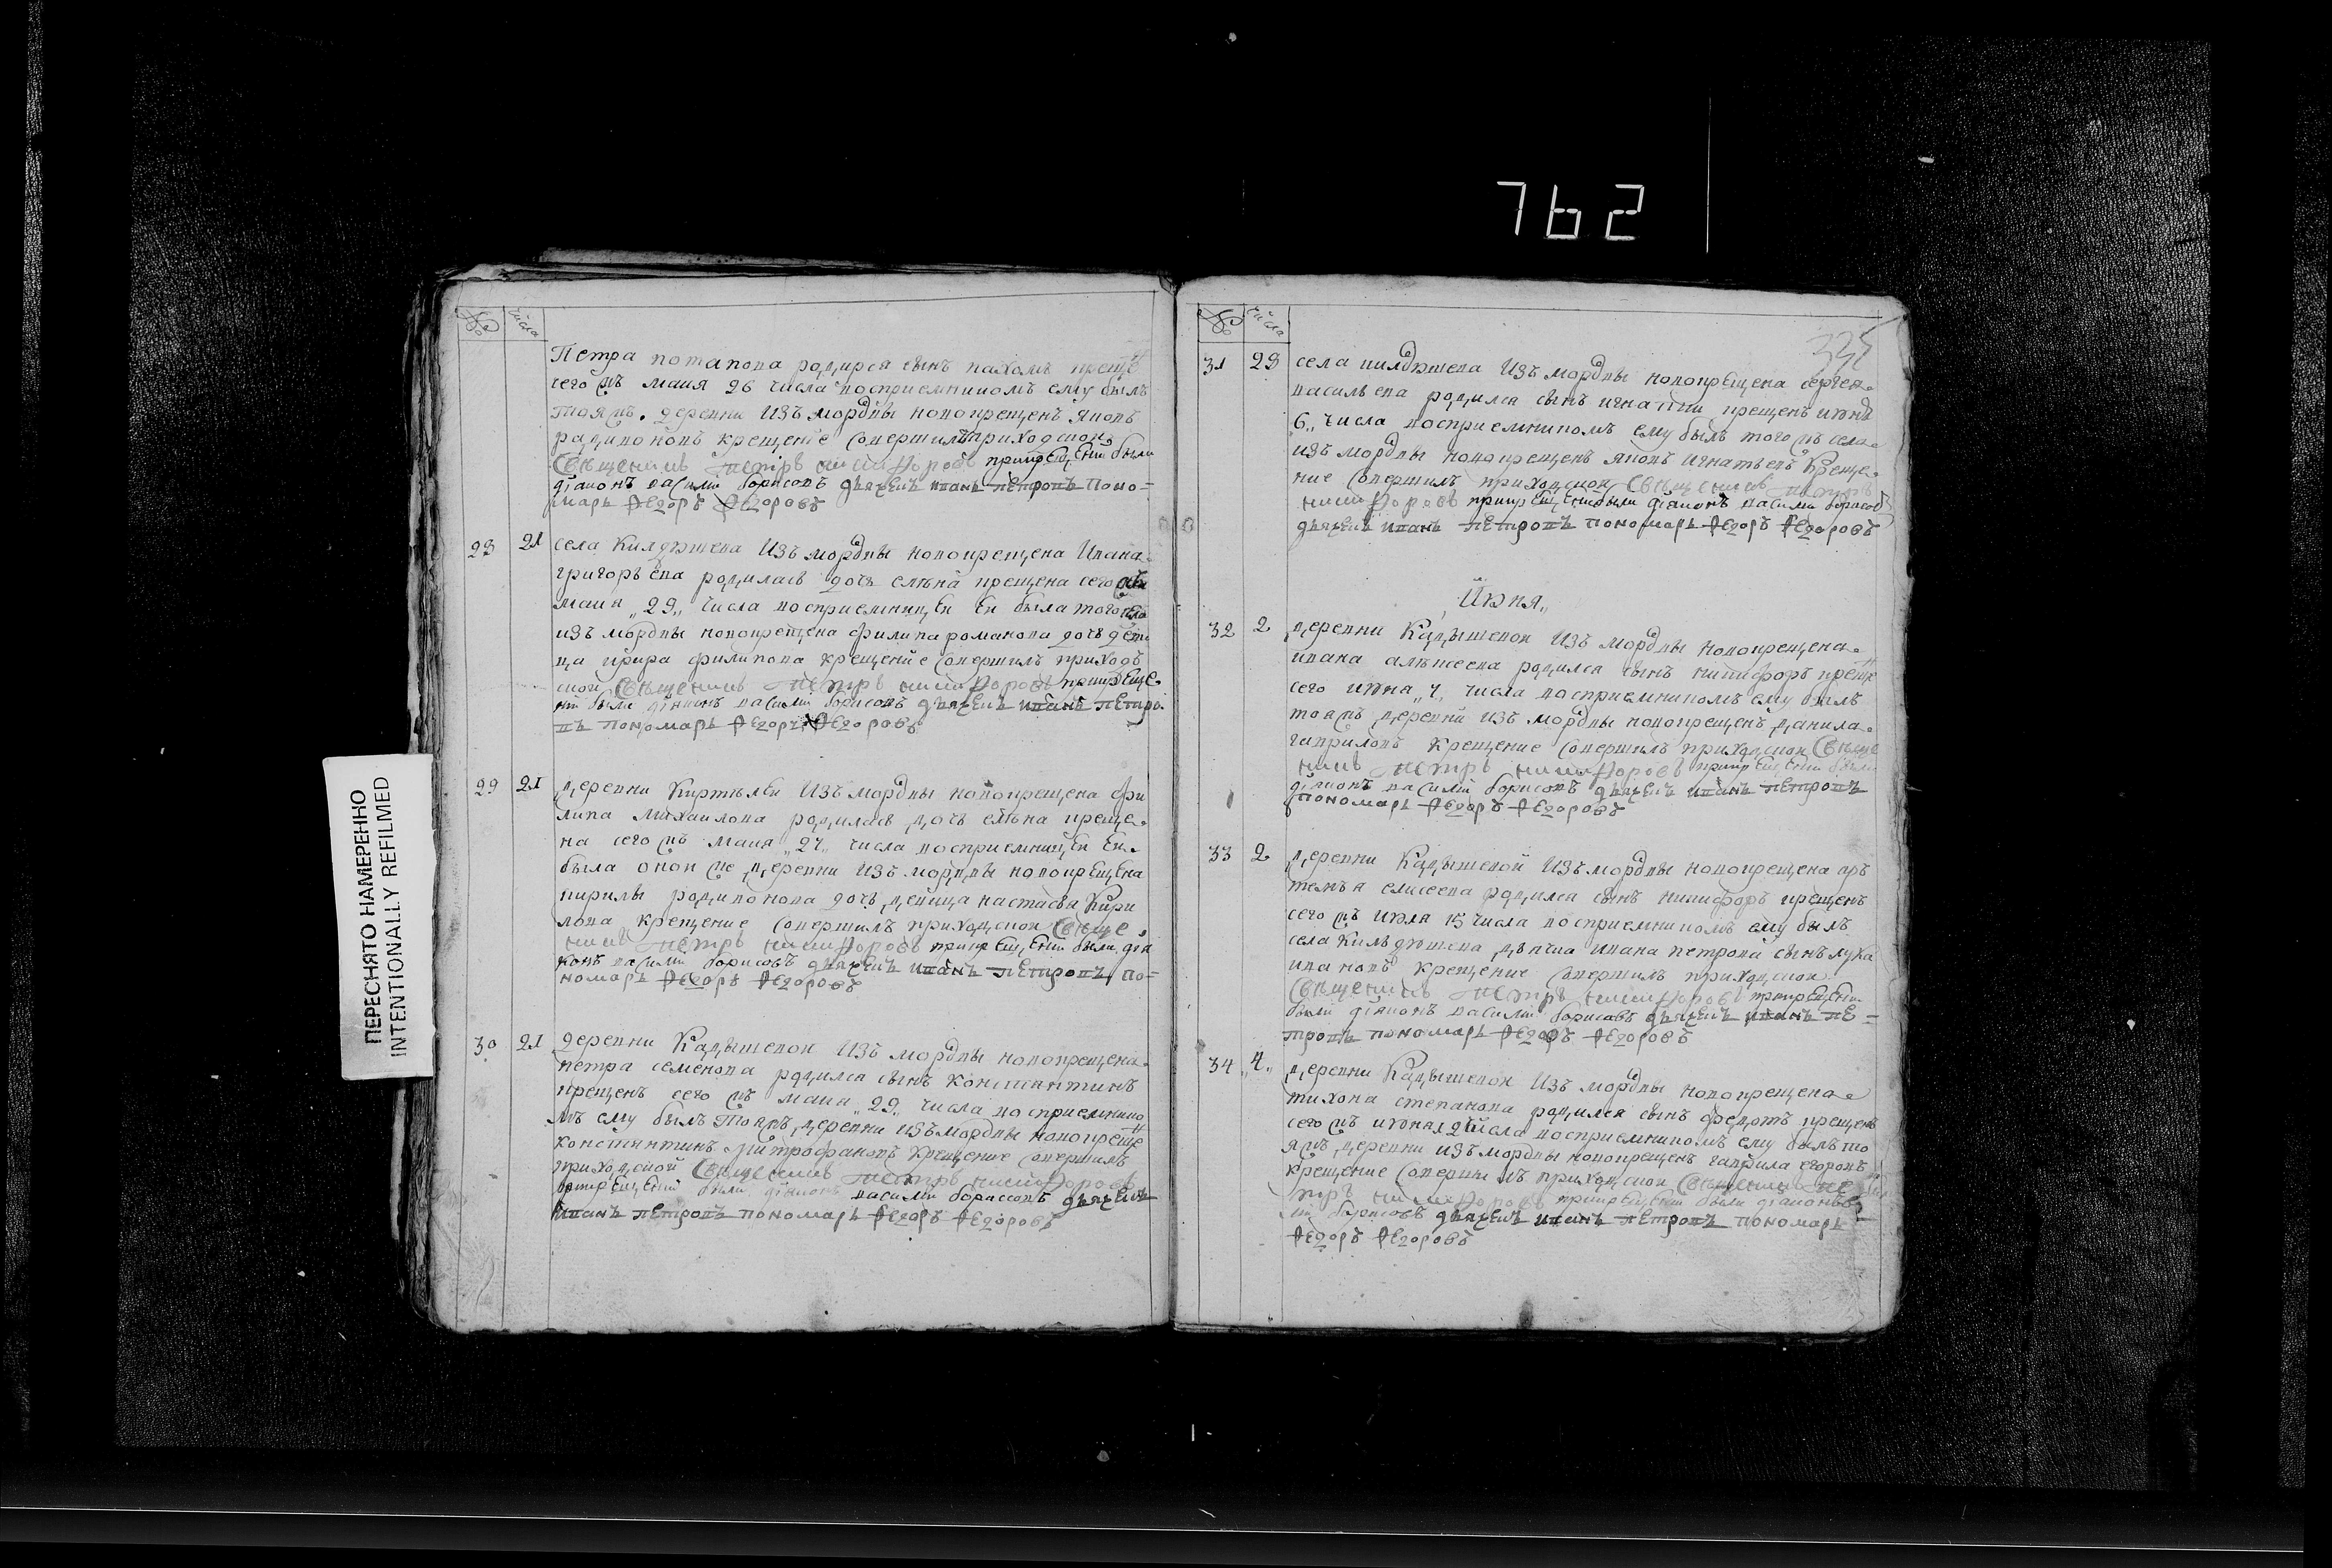 762
ПЕРЕСНЯТО НАМЕРЕННО
INTENTIONALLY REFILMED
№ числа
Петра потапова родился сынъ пахомъ креще
сего жъ маия 26 числа восприемникомъ ему былъ
тояжъ деревни изъ мордвы новокрещенъ яковъ
радионовъ крещение совершилъ приходской
священникъ петръ никифоровъ при крещении были
дiаконъ василий борисовъ дьячекъ иванъ петровъ поно=
марь Федоръ Федоровъ
28 21 села Килдюшева изъ мордвы новокрещена Ивана
григорьева родилась дочь елена крещена сего жъ
маия „29„ числа восприемницеи еи была того села
изъ мордвы новокрещена филипа романова дочь деви
ца ирира филипова крещение совершилъ приход
скои священникъ петръ никифоровъ при креще
нии были дiаконъ василий борисовъ дьячекъ иванъ петро
въ пономарь Федоръ Федоровъ
29 21 деревни Киртелеи изъ мордвы новокрещена фи
липа михаилова родилась дочь елена креще
на сего жъ маия „27„ числа восприемницеи еи
была онои же деревни изъ мордвы новокрещена
кирилы родионова дочь девица настасья Кири
лова крещение совершилъ приходскои священ
никъ петръ никифоровъ при крещении были дiа
конъ василий борисовъ дьячекъ иванъ петровъ по=
номарь Федоръ Федоровъ
30 21 деревни Кадышевои изъ мордвы новокрещена
петра семенова родился сынъ константинъ
крещенъ сего жъ маия „29„ числа восприемнико
мъ ему былъ тояжъ деревни изъ мордвы новокреще
константинъ митрофановъ крещение совершилъ
приходской священникъ петръ никифоровъ
при крещении были дiаконъ василий борисовъ дьячекъ
иванъ петровъ пономарь Федоръ Федоровъ
№ числа
335
31 28 села килдюшева изъ мордвы новокрещена сергея
васильева родился сынъ игнатии крещенъ июня
6„ числа восприемникомъ ему былъ того жъ села
изъ мордвы новокрещенъ яковъ игнатьевъ Креще
ние совершилъ приходскои священникъ петръ
никифоровъ при крещении были дiаконъ василий борисовъ
дьячекъ иванъ петровъ пономарь Федоръ Федоровъ
Июня„
32 2 деревни Кадышевои изъ мордвы новокрещена
ивана алексеева родился сынъ никифоръ креще
сего июня „4„ числа восприемникомъ ему былъ
тояжъ деревни изъ мордвы новокрещенъ данила
гавриловъ крещение совершилъ приходскои священ
никъ петръ никифоровъ при крещении были
дiаконъ василий борисовъ дьячекъ иванъ петровъ
пономарь Федоръ Федоровъ
33 2 деревни Кадышевой изъ мордвы новокрещена ар
темья елисеева родился сынъ никифоръ крещенъ
сего жъ июля 15 числа восприемникомъ ему былъ
села Кильдюшева дьячка ивана петрова сынъ лука
ивановъ крещение совершилъ приходскои
священникъ петръ никифоровъ при крещении
были дiаконъ василий борисовъ дьячекъ иванъ пе=
тровъ пономарь Федоръ Федоровъ
34 „4„ деревни Кадышевои изъ мордвы новокрещена
тихона степанова родился сынъ федотъ крещенъ
сего жъ июня 12 числа восприемникомъ ему былъ то
яжъ деревни изъ мордвы новокрещенъ гаврила егоровъ
крещение совершилъ приходскои священникъ пе
тръ никифоровъ при крещении были дiаконъ васи
лий борисовъ дьячекъ иванъ петровъ пономарь
Федоръ Федоровъ